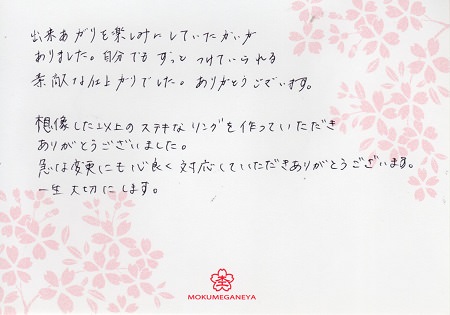 出来あがりを楽しみにしていたかいが
ありました。自分でもずっとつけていられる
素敵な仕上がりでした。ありがとうございます。
想像した以上のステキなリングを作っていただき
ありがとうございました。
急な変更にも心良く対応していただきありがとうございます。
一生大切にします。
MOKUMEGANEYA